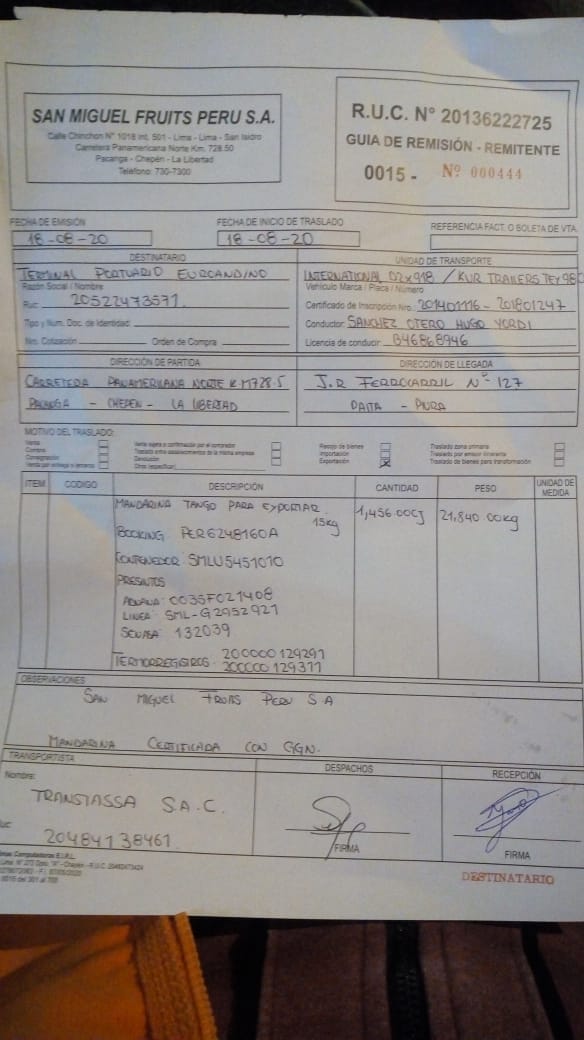 SAN MIGUEL FRUITS PERU S.A.
Calle Chinchon N° 1018 Int. 501 - Lima - Lima - San Isidro
Carretera Panamericana Norte Km. 728.50
Pacanga - Chepén - La Libertad
Teléfono: 730-7300
R.U.C. N° 20136222725
GUIA DE REMISIÓN - REMITENTE
0015 - Nº 000444
FECHA DE EMISIÓN
18-08-20
FECHA DE INICIO DE TRASLADO
18-08-20
REFERENCIA FACT. O BOLETA DE VTA.
DESTINATARIO
TERMINAL PORTUARIO EUROANDINO
Razón Social / Nombre
Ruc: 20522473571
Tipo y Num. Doc. de Identidad:
Nro. Cotización Orden de Compra
UNIDAD DE TRANSPORTE
INTERNATIONAL D2X918 / KUR TRAILERS TEY980
Vehículo Marca / Placa / Número
Certificado de Inscripción Nro.: 201401116 - 201801247
Conductor: SANCHEZ OTERO HUGO YORDI
Licencia de conducir: B46868946
DIRECCIÓN DE PARTIDA
CARRETERA PANAMERICANA NORTE KM728.5
PACANGA - CHEPEN - LA LIBERTAD
DIRECCIÓN DE LLEGADA
J.R FERROCARRIL N° 127
PAITA - PIURA
MOTIVO DEL TRASLADO:
Venta
Compra
Consignación
Venta por entrega a terceros
Venta sujeta a confirmación por el comprador
Traslado entre establecimientos de la misma empresa
Devolución
Otros (especificar)
Recojo de bienes
Importación
Exportación X
Traslado zona primaria
Traslado por emisor itinerante
Traslado de bienes para transformación
ITEM CODIGO DESCRIPCIÓN CANTIDAD PESO UNIDAD DE MEDIDA
MANDARINA TANGO PARA EXPORTAR 15kg 1,456.00CJ 21,840.00kg
BOOKING: PER6248160A
CONTENEDOR: SMLU5451010
PRESINTOS
ADUANA: 0035F021408
LINEA: SML-G2952921
SENASA: 132039
TERMORREGISTROS: 200000129291
200000129377
OBSERVACIONES
SAN MIGUEL FRUITS PERU S A
MANDARINA CERTIFICADA CON GGN.
TRANSPORTISTA
Nombre:
TRANSTASSA S.A.C.
Ruc:
20484138461
DESPACHOS
FIRMA
RECEPCIÓN
FIRMA
DESTINATARIO